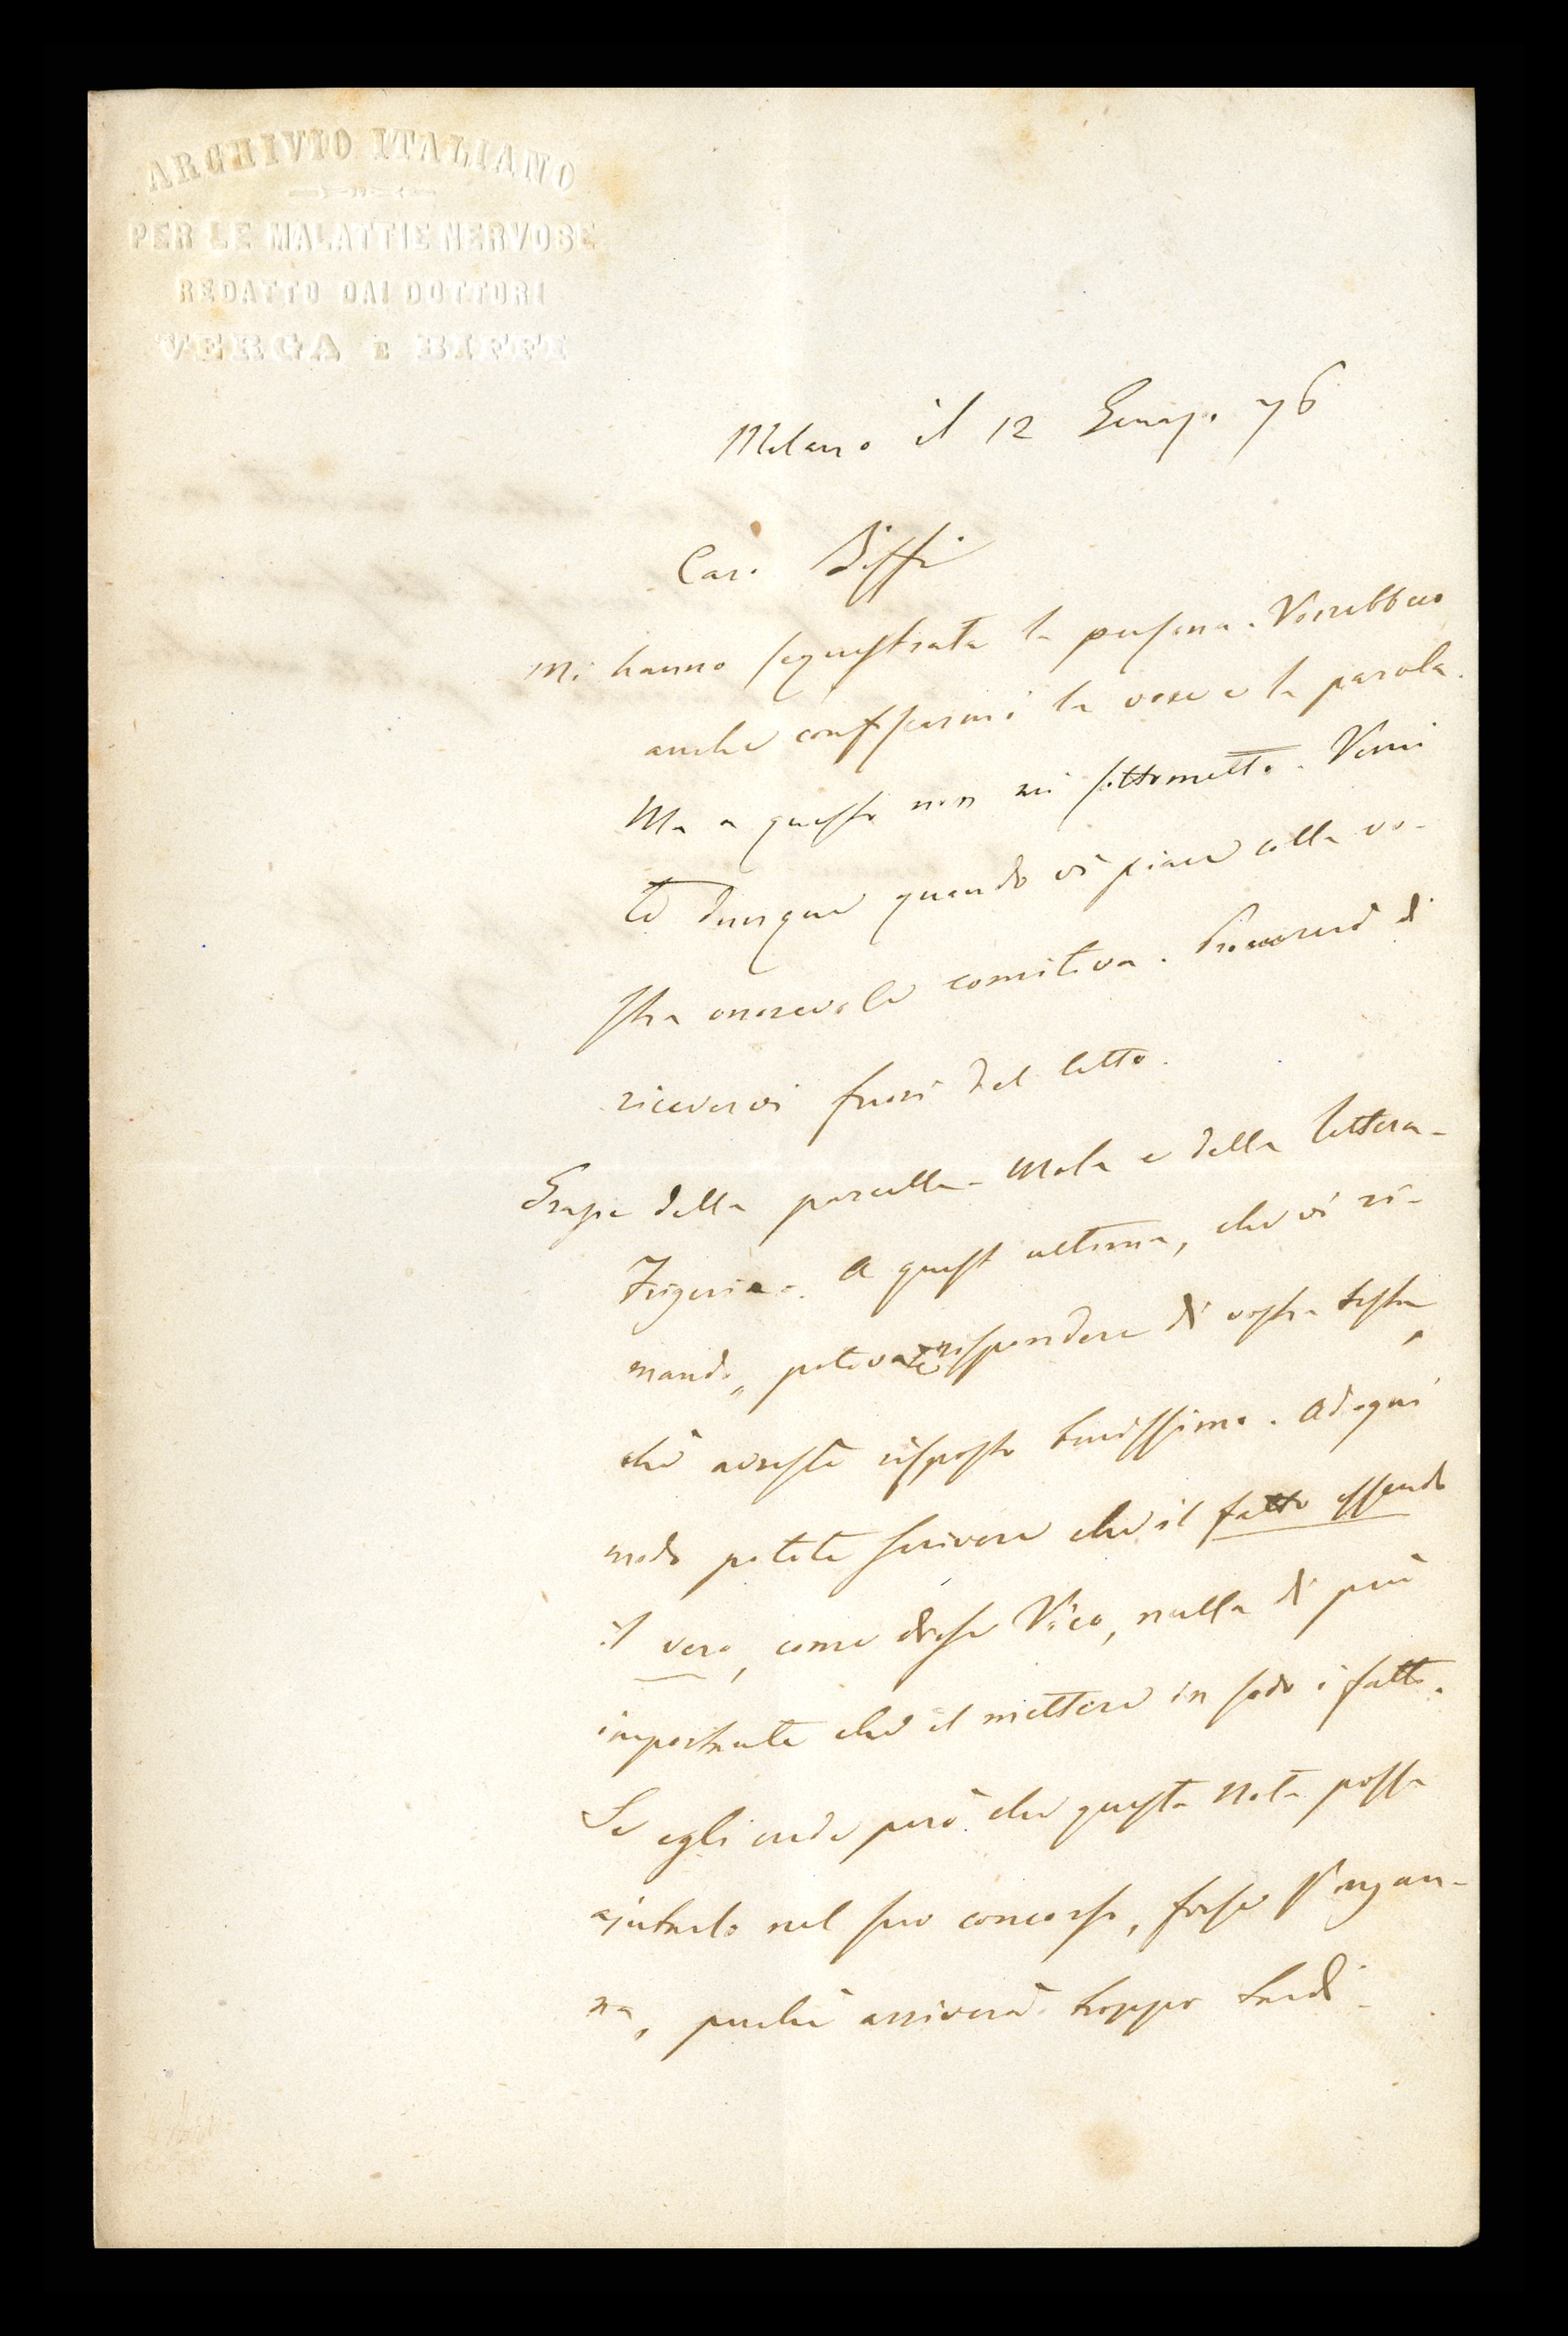 ARCHIVIO ITALIANO
PER LE MALATTIE NERVOSE
REDATTO DAI DOTTORI
VERGA E BIFFI
Milano il 12 Genajo 76
Caro Biffi
Mi hanno sequestrata la persona. Vorrebbero
anche confiscarmi la voce e la parola.
Ma a questo non mi sottometto. Veni
te dunque quando vi piace colla vo-
stra onorevole comitiva. Procurerò di
ricevervi fuori del letto.
Grazie della parcella - Mola e della lettera -
Frigerio -. A quest ultima, che vi ri-
mando, potevate rispondere di vostra testa,
chè avreste risposto benissimo. Ad ogni
modo potete scrivere che il fatto essendo
il vero, come disse Vico, nulla di più
importante che il mettere in sodo i fatti.
Se egli crede però che questa Nota possa
ajutarlo nel suo concorso, forse s'ingan-
na, perchè arriverà troppo tardi.